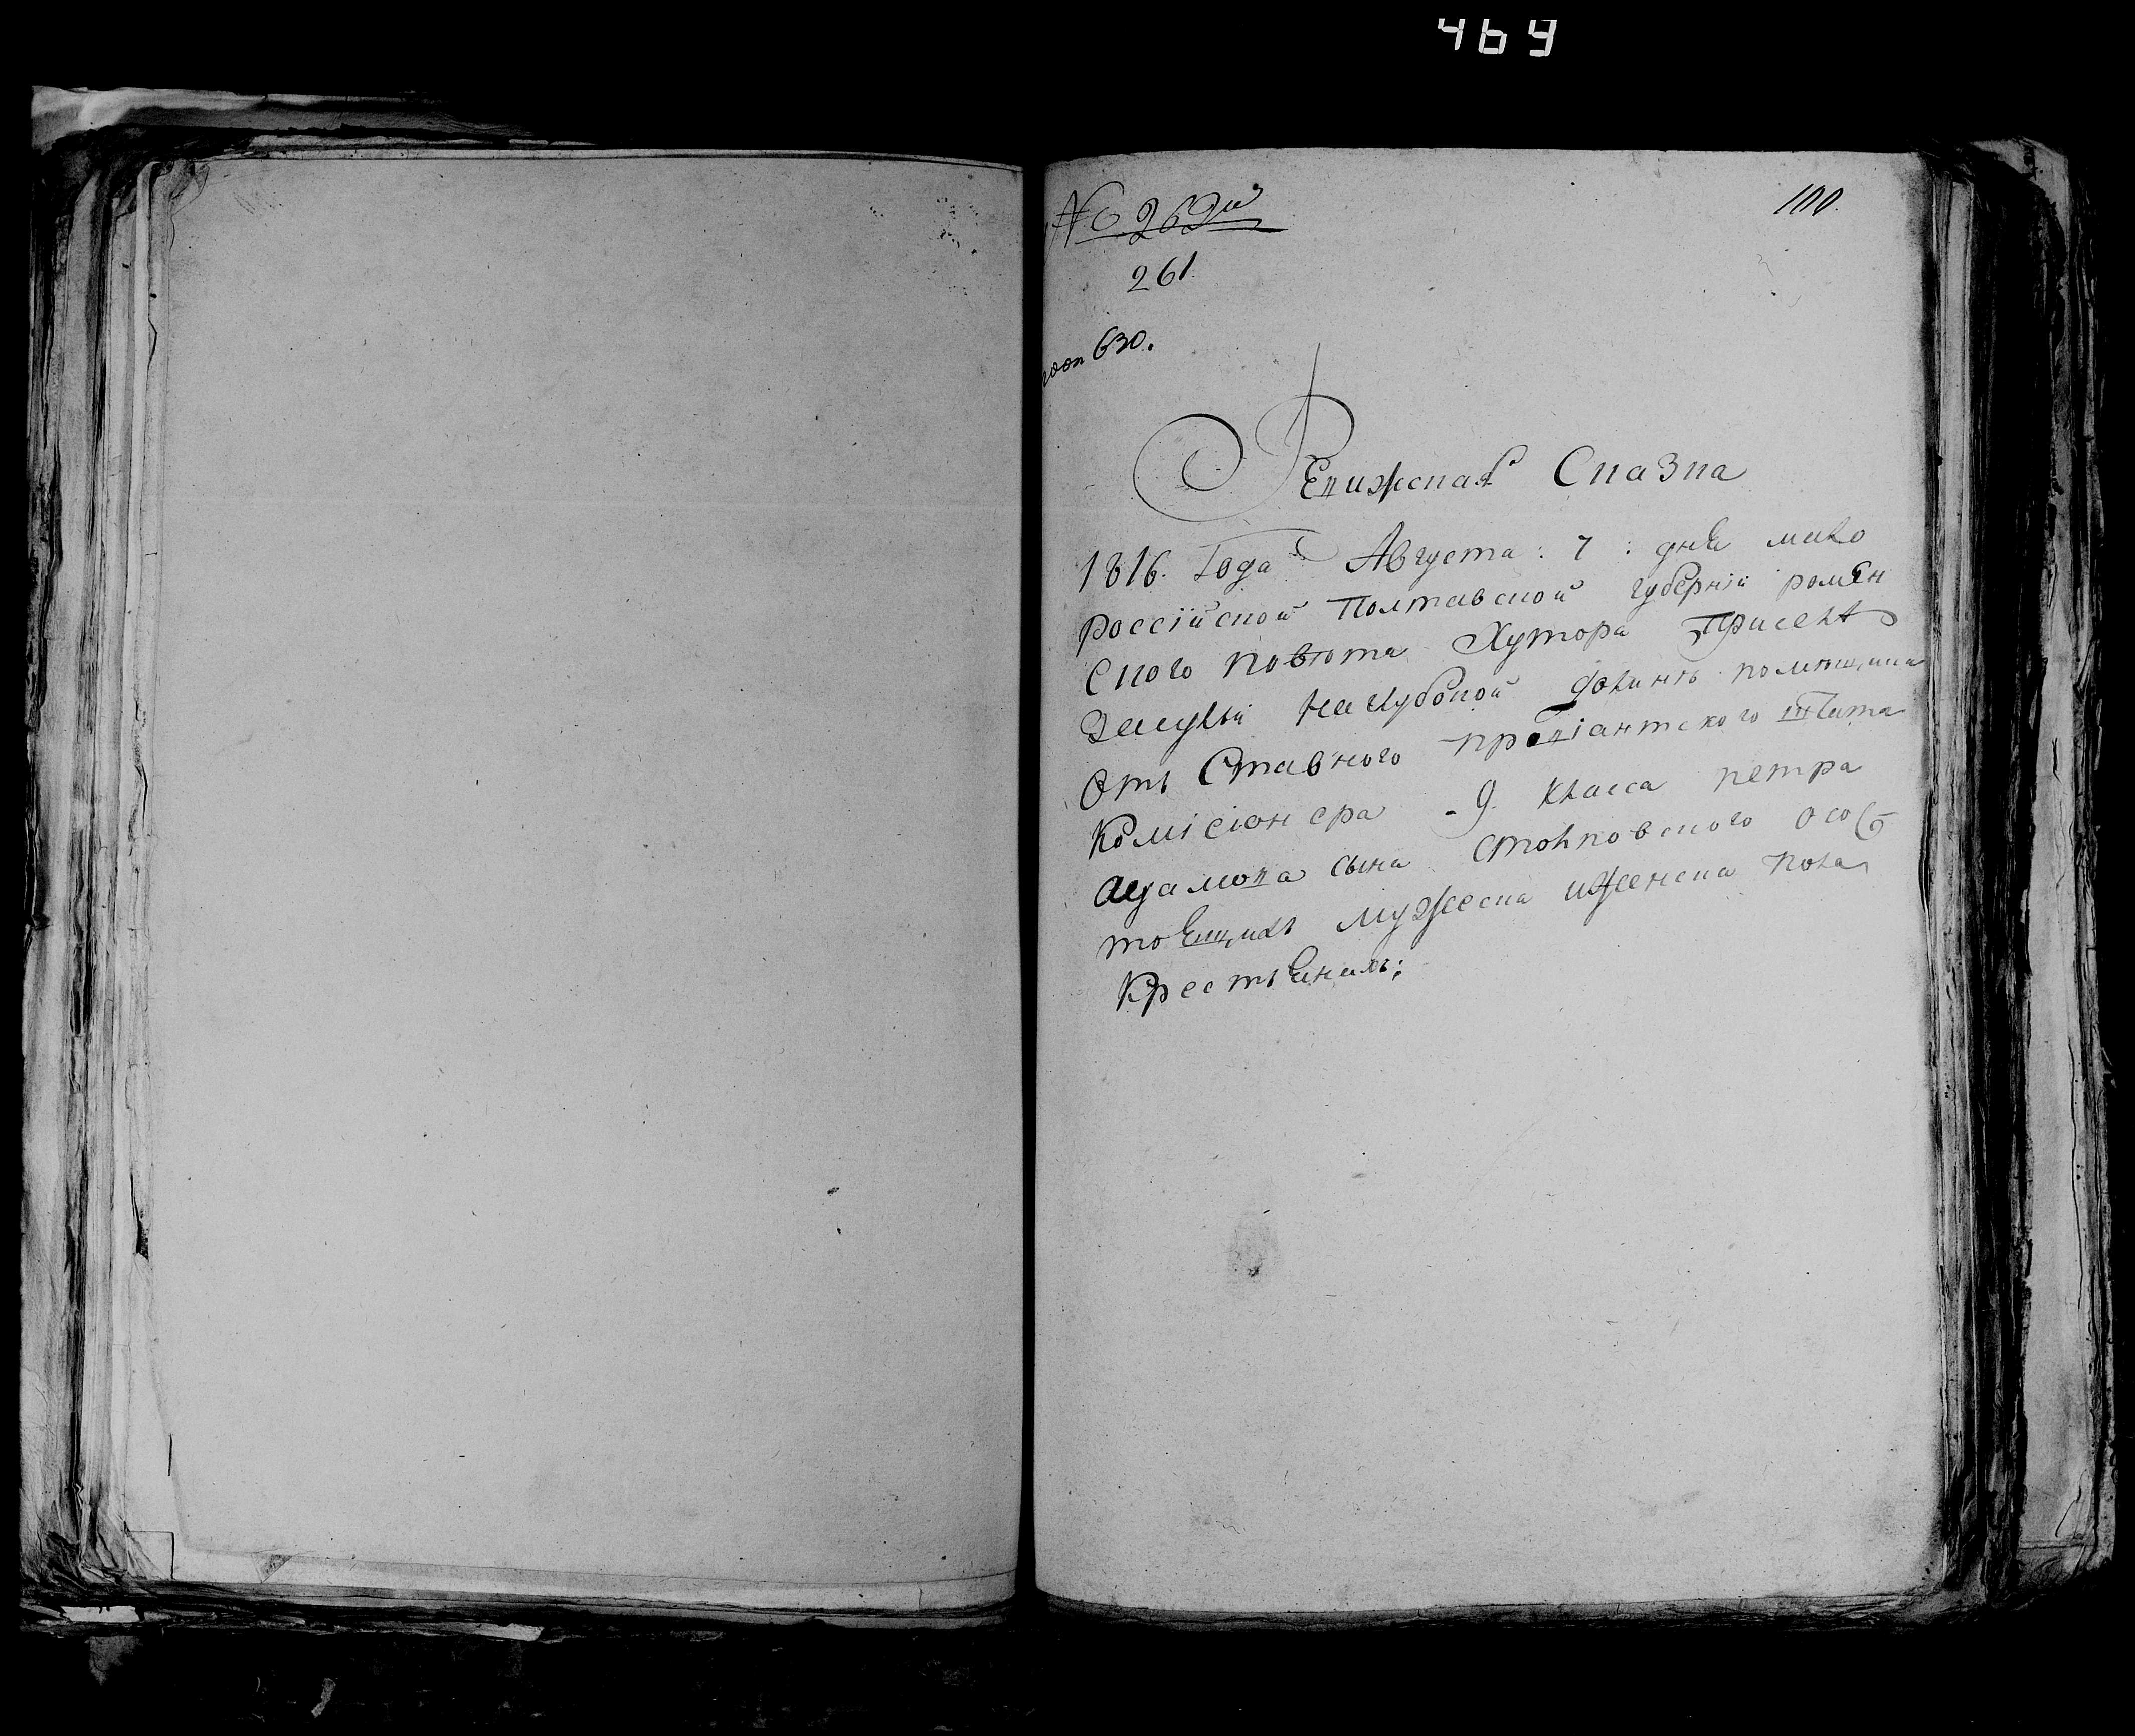 469
№ 262й
100.
261.
630.
Ревижская Сказка
1816. Года Августа: 7: дня мало
россійской Полтавской губерніи ромен
ского повѣта Хутора При селѣ
Засулїи На Лубѣнской долинѣ помѣщика
Отъ Ставного провіантского штата
Комісіонера 9. класса петра
сына Столповского о со
тоящихъ мужеска и женска пола
Крестьянахъ: